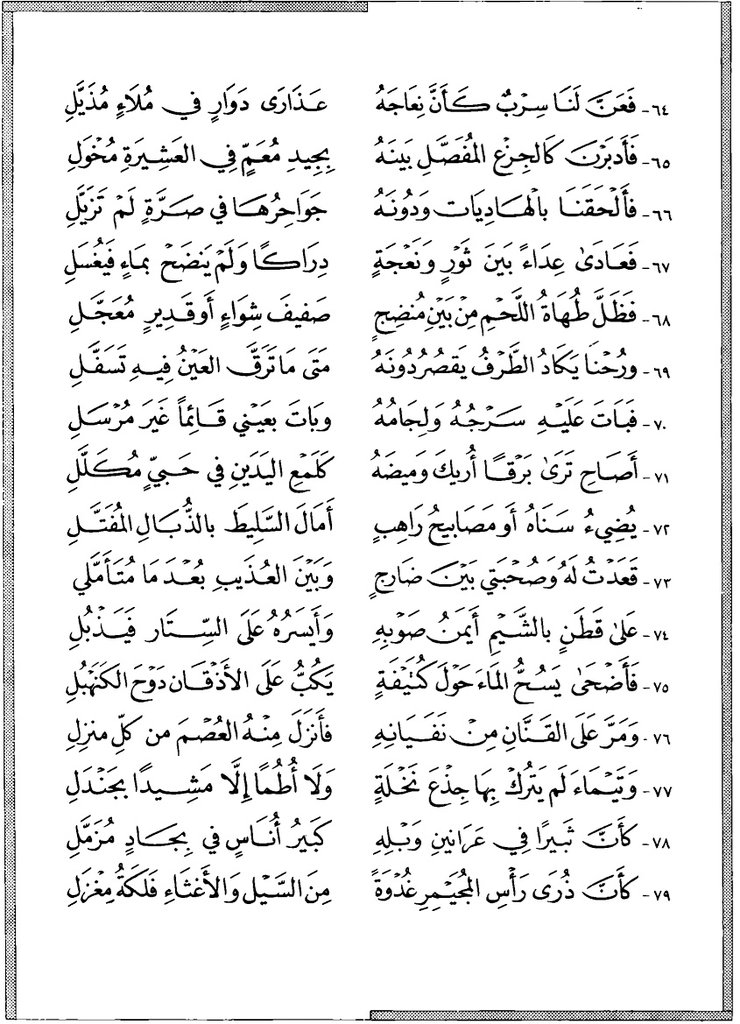 ٦٤- فَعَنَّ لَنَا سِرْبٌ كَأَنَّ نِعَاجَهُ عَذَارَى دَوَارٍ في مُلَاءٍ مُذَيَّلِ
٦٥- فَأَدبَرْنَ كَالجِزْعِ المُفَصَّلِ بَينَهُ بِجِيدِ مُعَمٍّ في العَشِيرَةِ مُخْوَلِ
٦٦- فأَلْحَقَنَا بالهَادِيَاتِ وَدُونَهُ جَوَاحِرُهَا في صَرَّةٍ لَمْ تَزَيَّلِ
٦٧- فَعَادَىٰ عِدَاءً بَينَ ثَورٍ وَنَعْجَةٍ دِرَاكًا وَلَمْ يَنضَحْ بمَاءٍ فَيُغْسَلِ
٦٨- فَظَلَّ طُهَاةُ اللَّحْمِ مِنْ بَيْنِ مُنضِجٍ صَفِيفَ شِوَاءٍ أَو قَدِيرٍ مُعَجَّلِ
٦٩- ورُحْنَا يَكَادُ الطَّرْفُ يَقصُرُ دُونَهُ مَتَى مَا تَرَقَّ العَيْنُ فِيهِ تَسَفَّلِ
٧٠- فَبَاتَ عَلَيْهِ سَرْجُهُ وَلِجَامُهُ وبَاتَ بعَيْني قَائِماً غَيرَ مُرْسَلِ
٧١- أَصَاحِ تَرَىٰ بَرْقًا أُرِيكَ وَمِيضَهُ كَلَمْعِ اليَدَينِ في حَبيٍّ مُكَلَّلِ
٧٢- يُضِيءُ سَنَاهُ أَو مَصَابيحُ رَاهِبٍ أَمَالَ السَّلِيطَ بالذُّبَالِ المُفَتَّلِ
٧٣- قَعَدْتُ لَهُ وَصُحْبَتي بَيْنَ ضَارِجٍ وَبَيْنَ العُذَيبِ بُعْدَ مَا مُتَأَمَّلي
٧٤- عَلىٰ قَطَنٍ بالشَّيْمِ أَيمَنُ صَوْبِهِ وَأَيسَرُهُ عَلَى السِّتَارِ فَيَذْبُلِ
٧٥- فَأَضْحَىٰ يَسُحُّ المَاءَ حَوْلَ كُتَيْفَةٍ يَكُبُّ عَلَى الأَذْقَانِ دَوْحَ الكَنَهْبُلِ
٧٦- وَمَرَّ عَلَى القَنَّانِ مِنْ نَفَيَانِهِ فأَنزَلَ مِنْهُ العُصْمَ من كلِّ منزِلِ
٧٧- وَتَيْمَاءَ لَم يَترُكْ بِهَا جِذْعَ نَخْلَةٍ وَلَا أُطُمًا إِلَّا مَشِيدًا بجَنْدَلِ
٧٨- كأَنَّ ثَبِيرًا فِي عَرَانِينِ وَبْلِهِ كَبَيرُ أُنَاسٍ في بِجَادٍ مُزَمَّلِ
٧٩- كأَنَّ ذُرَى رَأْسِ المُجَيْمِرِ غُدْوَةً مِنَ السَّيْلِ وَالأَغثَاءِ فَلَكَةُ مِغْزَلِ